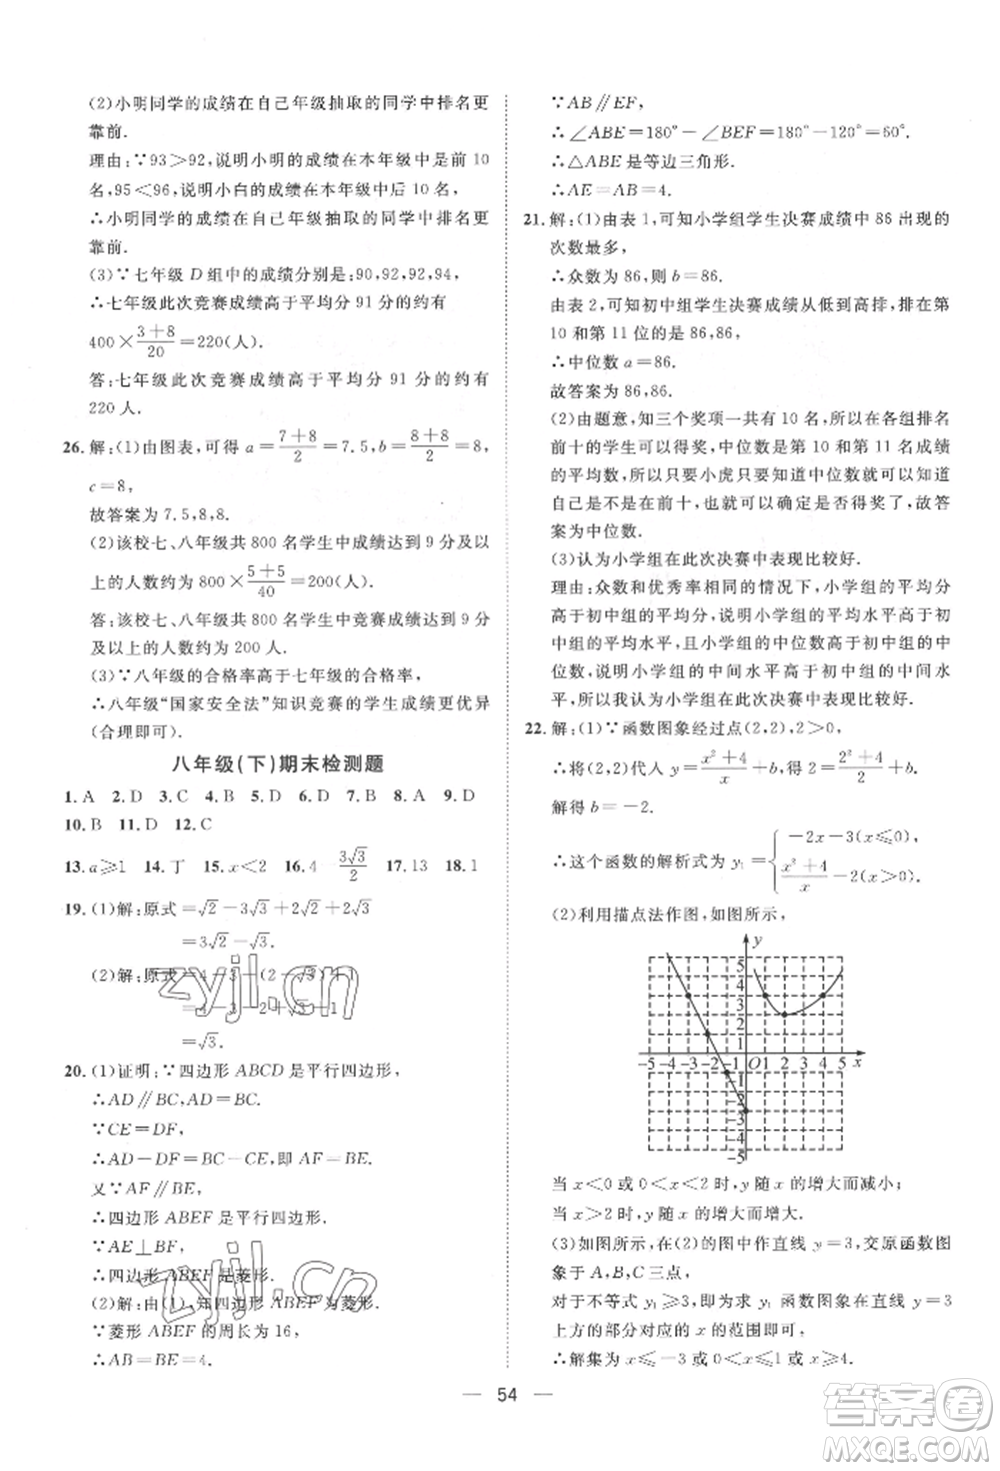 (2)小明同学的成绩在自己年级抽取的同学中排名更
靠前.
理由:∵93＞92,说明小明的成绩在本年级中是前 10
名,95＜96,说明小白的成绩在本年级中不是前 10 名,
∴小明同学的成绩在自己年级抽取的同学中排名更
靠前.
(3)∵七年级 D 组中的成绩分别是:90,92,92,94,
∴七年级此次竞赛成绩高于平均分 91 分的约有
400×(3+8)/20=220(人).
答:七年级此次竞赛成绩高于平均分 91 分的约有
220 人.
26.解:(1)由图表,可得 a=(7+8)/2=7.5,b=(8+8)/2=8,
c=8,
故答案为 7.5,8,8.
(2)该校七、八年级共 800 名学生中成绩达到 9 分及以
上的人数约为 800×(5+5)/40=200(人).
答:该校七、八年级共 800 名学生中竞赛成绩达到 9
分及以上的人数约有 200 人.
(3)∵八年级的合格率高于七年级的合格率,
∴八年级“国家安全法”知识竞赛的学生成绩更优异
(合理即可).
八年级(下)期末检测题
1.A 2.D 3.C 4.B 5.D 6.B 7.B 8.A 9.D
10.B 11.D 12.C
13.a≥1 14.丁 15.x＜2 16.4 3√3/2 17.13 18.1
19.(1)解:原式=√2－3√3+2√2+2√3
=3√2－√3.
(2)解:原式=4－3－(2－√3)+1
=4－3－2+√3+1
=√3.
20.(1)证明:∵四边形 ABCD 是平行四边形,
∴AD∥BC,AD=BC.
∵CE=DF,
∴AD－DF=BC－CE,即 AF=BE.
又∵AF∥BE,
∴四边形 ABEF 是平行四边形.
∵AE⊥BF,
∴四边形 ABEF 是菱形.
(2)解:由(1),知四边形 ABEF 为菱形.
∵菱形 ABEF 的周长为 16,
∴AB=BE=4.
∵AB∥EF,
∴∠ABE=180°－∠BEF=180°－120°=60°,
∴△ABE 是等边三角形.
∴AE=AB=4.
21.解:(1)由表 1,可知小学组学生决赛成绩中 86 出现的
次数最多,
∴众数为 86,则 b=86.
由表 2,可知初中组学生决赛成绩从低到高排,排在第
10 和第 11 位的是 86,86,
∴中位数 a=86.
故答案为 86,86.
(2)由题意,知三个奖项一共有 10 名,所以在各组排名
前十的学生可以获奖,中位数是第 10 和第 11 名成绩
的平均数,所以只要小虎只要知道中位数就可以知道
自己成绩是否是前十,进而知道是否能够得奖了,故答
案为中位数.
(3)认为小学组在此次决赛中表现比较好.
理由:众数和优秀率相同的情况下,小学组的平均分
高于初中组的平均分,说明小学组的平均水平高于初
中组的平均水平,且小学组的中位数高于初中组的中
位数,说明小学组的中间水平高于初中组的中间水
平,所以我认为小学组在此次决赛中表现比较好.
22.解:(1)∵函数图象经过点(2,2),2＞0,
∴将(2,2)代人 y=(x²+4)/x+b,得 2=(2²+4)/2+b.
解得 b=－2.
∴这个函数的解析式为 y₁={－2x－3(x≤0), (x²+4)/x－2(x＞0).
(2)利用描点法作图,如图所示,
y
5
4
3
2
1
-5-4-3-2-1 O1 2 3 4 5 x
-1
-2
-3
-4
-5
当 x＜0 或 0＜x＜2 时,y 随 x 的增大而减小;
当 x＞2 时,y 随 x 的增大而增大.
(3)如图所示,在(2)的图中作直线 y=3,交原函数图
象于 A,B,C 三点,
对于不等式 y₁≥3,即为求 y₁ 函数图象在直线 y=3
上方的部分对应的 x 的范围即可,
∴解集为 x≤－3 或 0＜x≤1 或 x≥4.
— 54 —
zyjl.cn
zyjl.cn
答案卷
MXQE.COM